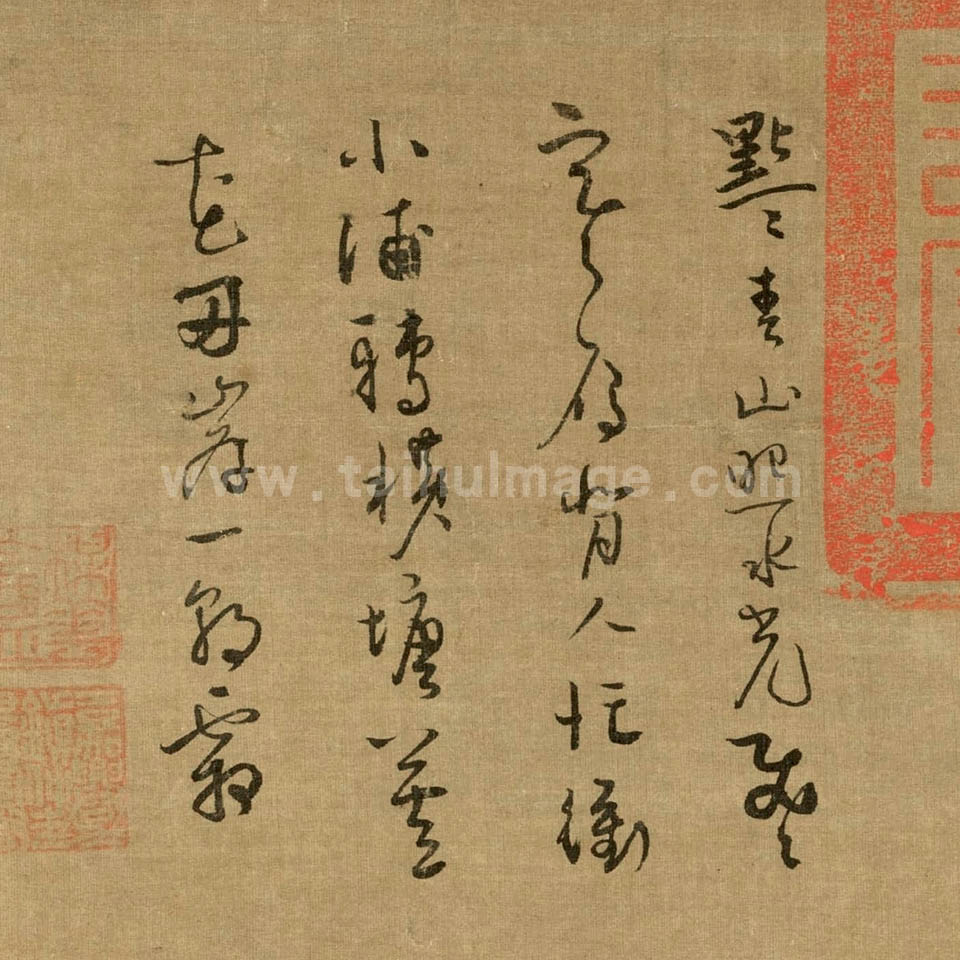 點〻青山照水光飛〻
寒雁背人忙衝
小浦轉橫塘蘆
花兩岸一朝霜
www.taikuImage.com